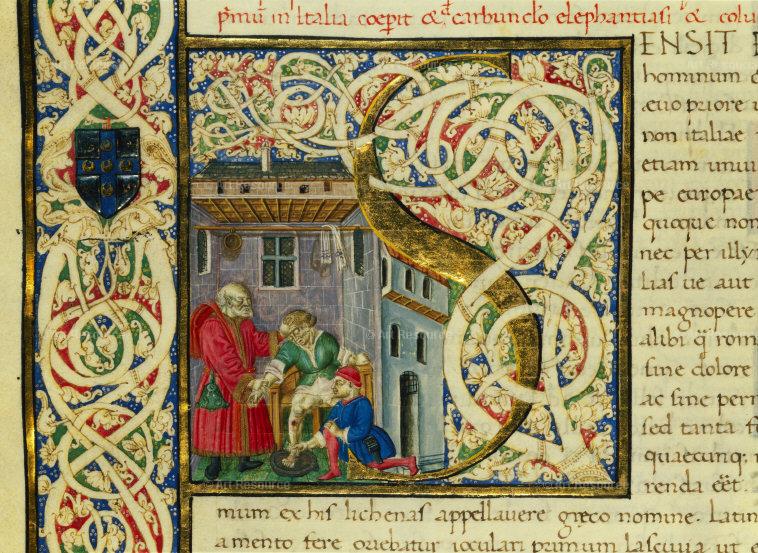 pmu in Italia coeperit & qd carbunclo elephantiasi & colu
SENSIT E
hominum
euo priore
non italiae
etiam unui
pe europae
quoque non
nec per illy
lias ue aut
magnopere
alibi q rom
sine dolore
ac sine pern
sed tanta fo
quaecunq.
renda eet.
mum ex his lichenas appellauere greco nomine. Latin
a mento fere oriebatur ioculari primum lasciuia ut e
© Art Resource